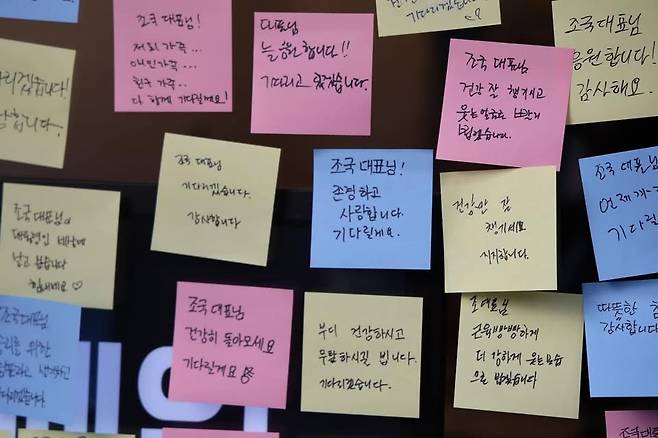 기다리겠습니다
조국 대표님!
저희 가족...
애인가족...
친구 가족...
다 함께 기다릴께요!
대표님
늘 응원합니다!!
기다리고 있겠습니다.
조국 대표님
건강 잘 챙기시고
웃는 얼굴로
조국 대표님
응원합니다!
감사해요.
다리겠습니다!
합니다.
조국 대표님
기다리겠습니다.
감사합니다
조국 대표님!
존경하고
사랑합니다.
기다릴게요.
건강만 잘
챙기세요
지지합니다.
조국 대표님
언제까지
기다릴
조국대표님
힘내세요♡
조국 대표님
건강히 돌아오세요
기다릴게요
부디 건강하시고
무탈하시길 빕니다.
기다리겠습니다.
더 강하게 웃는 모습
으로
따뜻한
감사합니다
조국 대표님
우리를 위한
조국 대표님